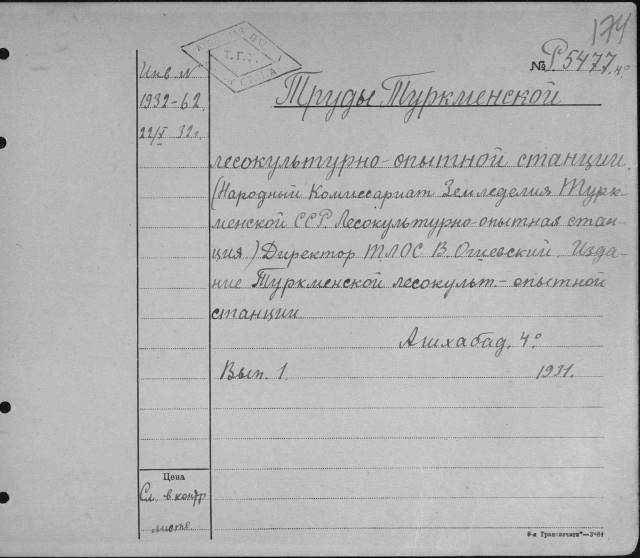 174
№ Р5477 4°
Инв N
1932-62
22/X 32г.
Т.Г.
Труды Туркменской
лесокультурно-опытной станции.
(Народный Комиссариат Земледелия Турк-
менской ССР. Лесокультурно-опытная стан-
ция.) Директор ТЛОС В. Огиевский. Изда-
ние Туркменской лесокульт.-опытной
станции
Ашхабад. 4°
Вып. 1. 1931.
Цена
См. в контр.
листе